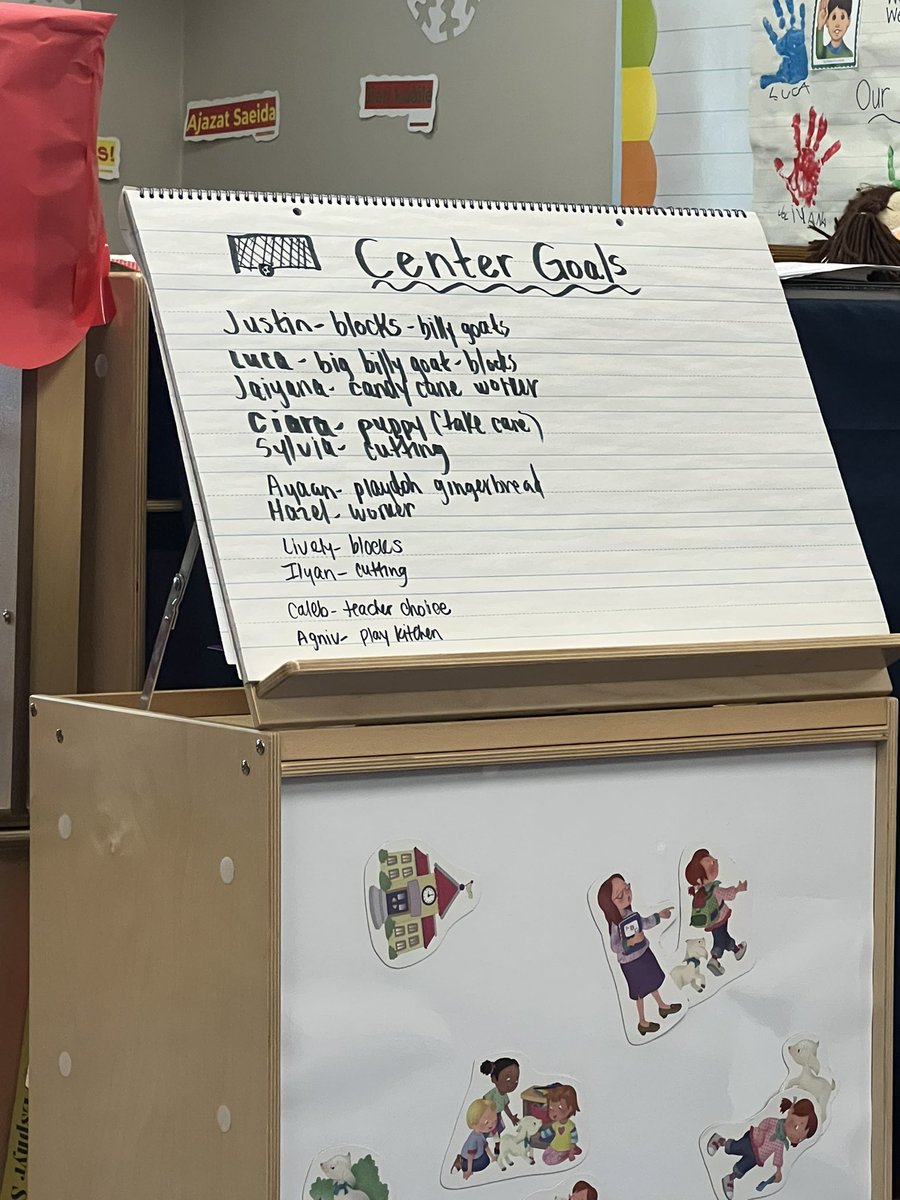 Ajazat Saeida
s!
We
LUCA
Our
Center Goals
Justin- blocks - billy goats
Luca - big billy goat - blocks
Jaiyana- candy cane worker
Ciara- puppy (take care)
Sylvia- cutting
Ayaan- playdoh gingerbread
Hazel- worker
Lively- blocks
Ilyan- cutting
Caleb- teacher choice
Agniv- play kitchen